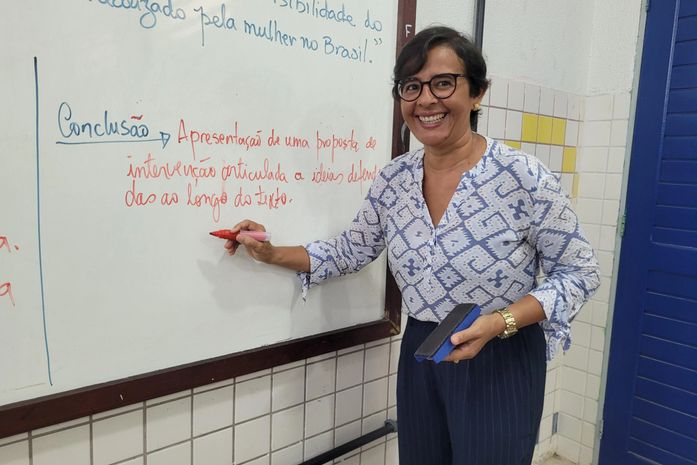 sibilidade do
realizado pela mulher no Brasil."
Conclusão → Apresentação de uma proposta de
intervenção articulada a ideias defendi
das ao longo do texto.
a.
a